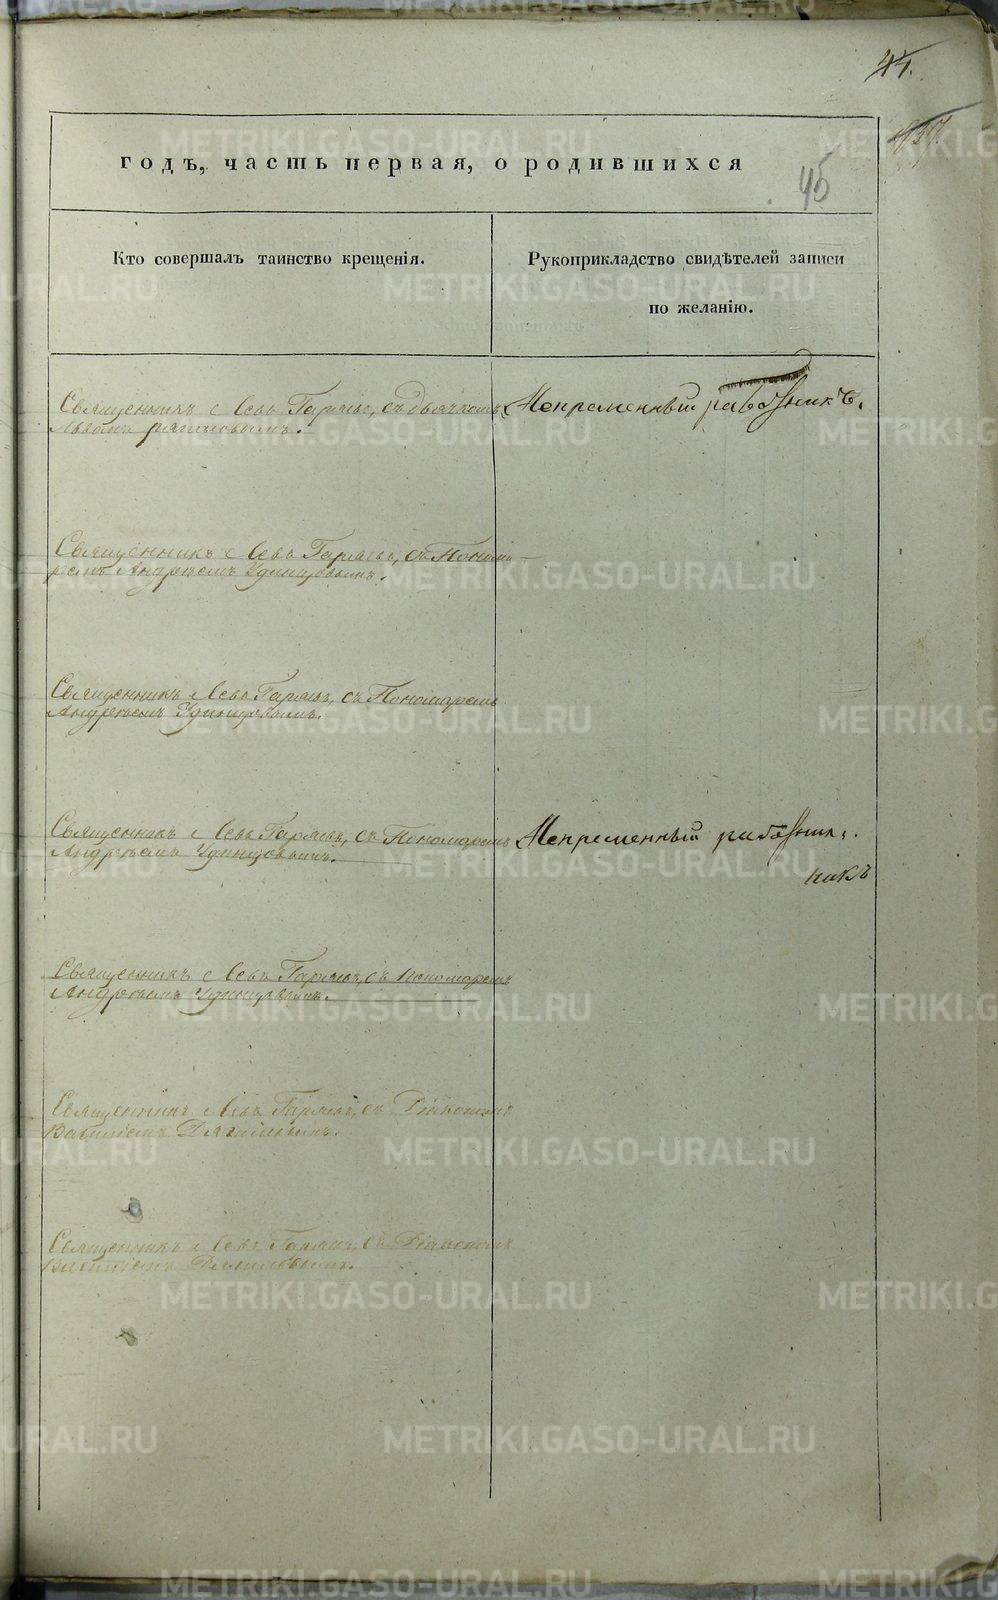 44.
45
годъ, часть первая, о родившихся
Кто совершалъ таинство крещенія.
Рукоприкладство свидѣтелей записи
по желанію.
Священникъ Левъ Гаряевъ, съ Дьячкомъ
Непременный работникъ.
Священникъ Левъ Гаряевъ, съ Понома-
ремъ Андреемъ Удинцовымъ.
Священникъ Левъ Гаряевъ, съ Пономаремъ
Андреемъ Удинцовымъ.
Священникъ Левъ Гаряевъ, съ Пономаремъ
Андреемъ Удинцовымъ.
Непременный работни-
никъ
Священникъ Левъ Гаряевъ, съ Пономаремъ
Андреемъ Удинцовымъ.
Священникъ Левъ Гаряевъ, съ Діакономъ
Василіемъ
Священникъ Левъ Гаряевъ, съ Діакономъ
Василіемъ
METRIKI.GASO-URAL.RU